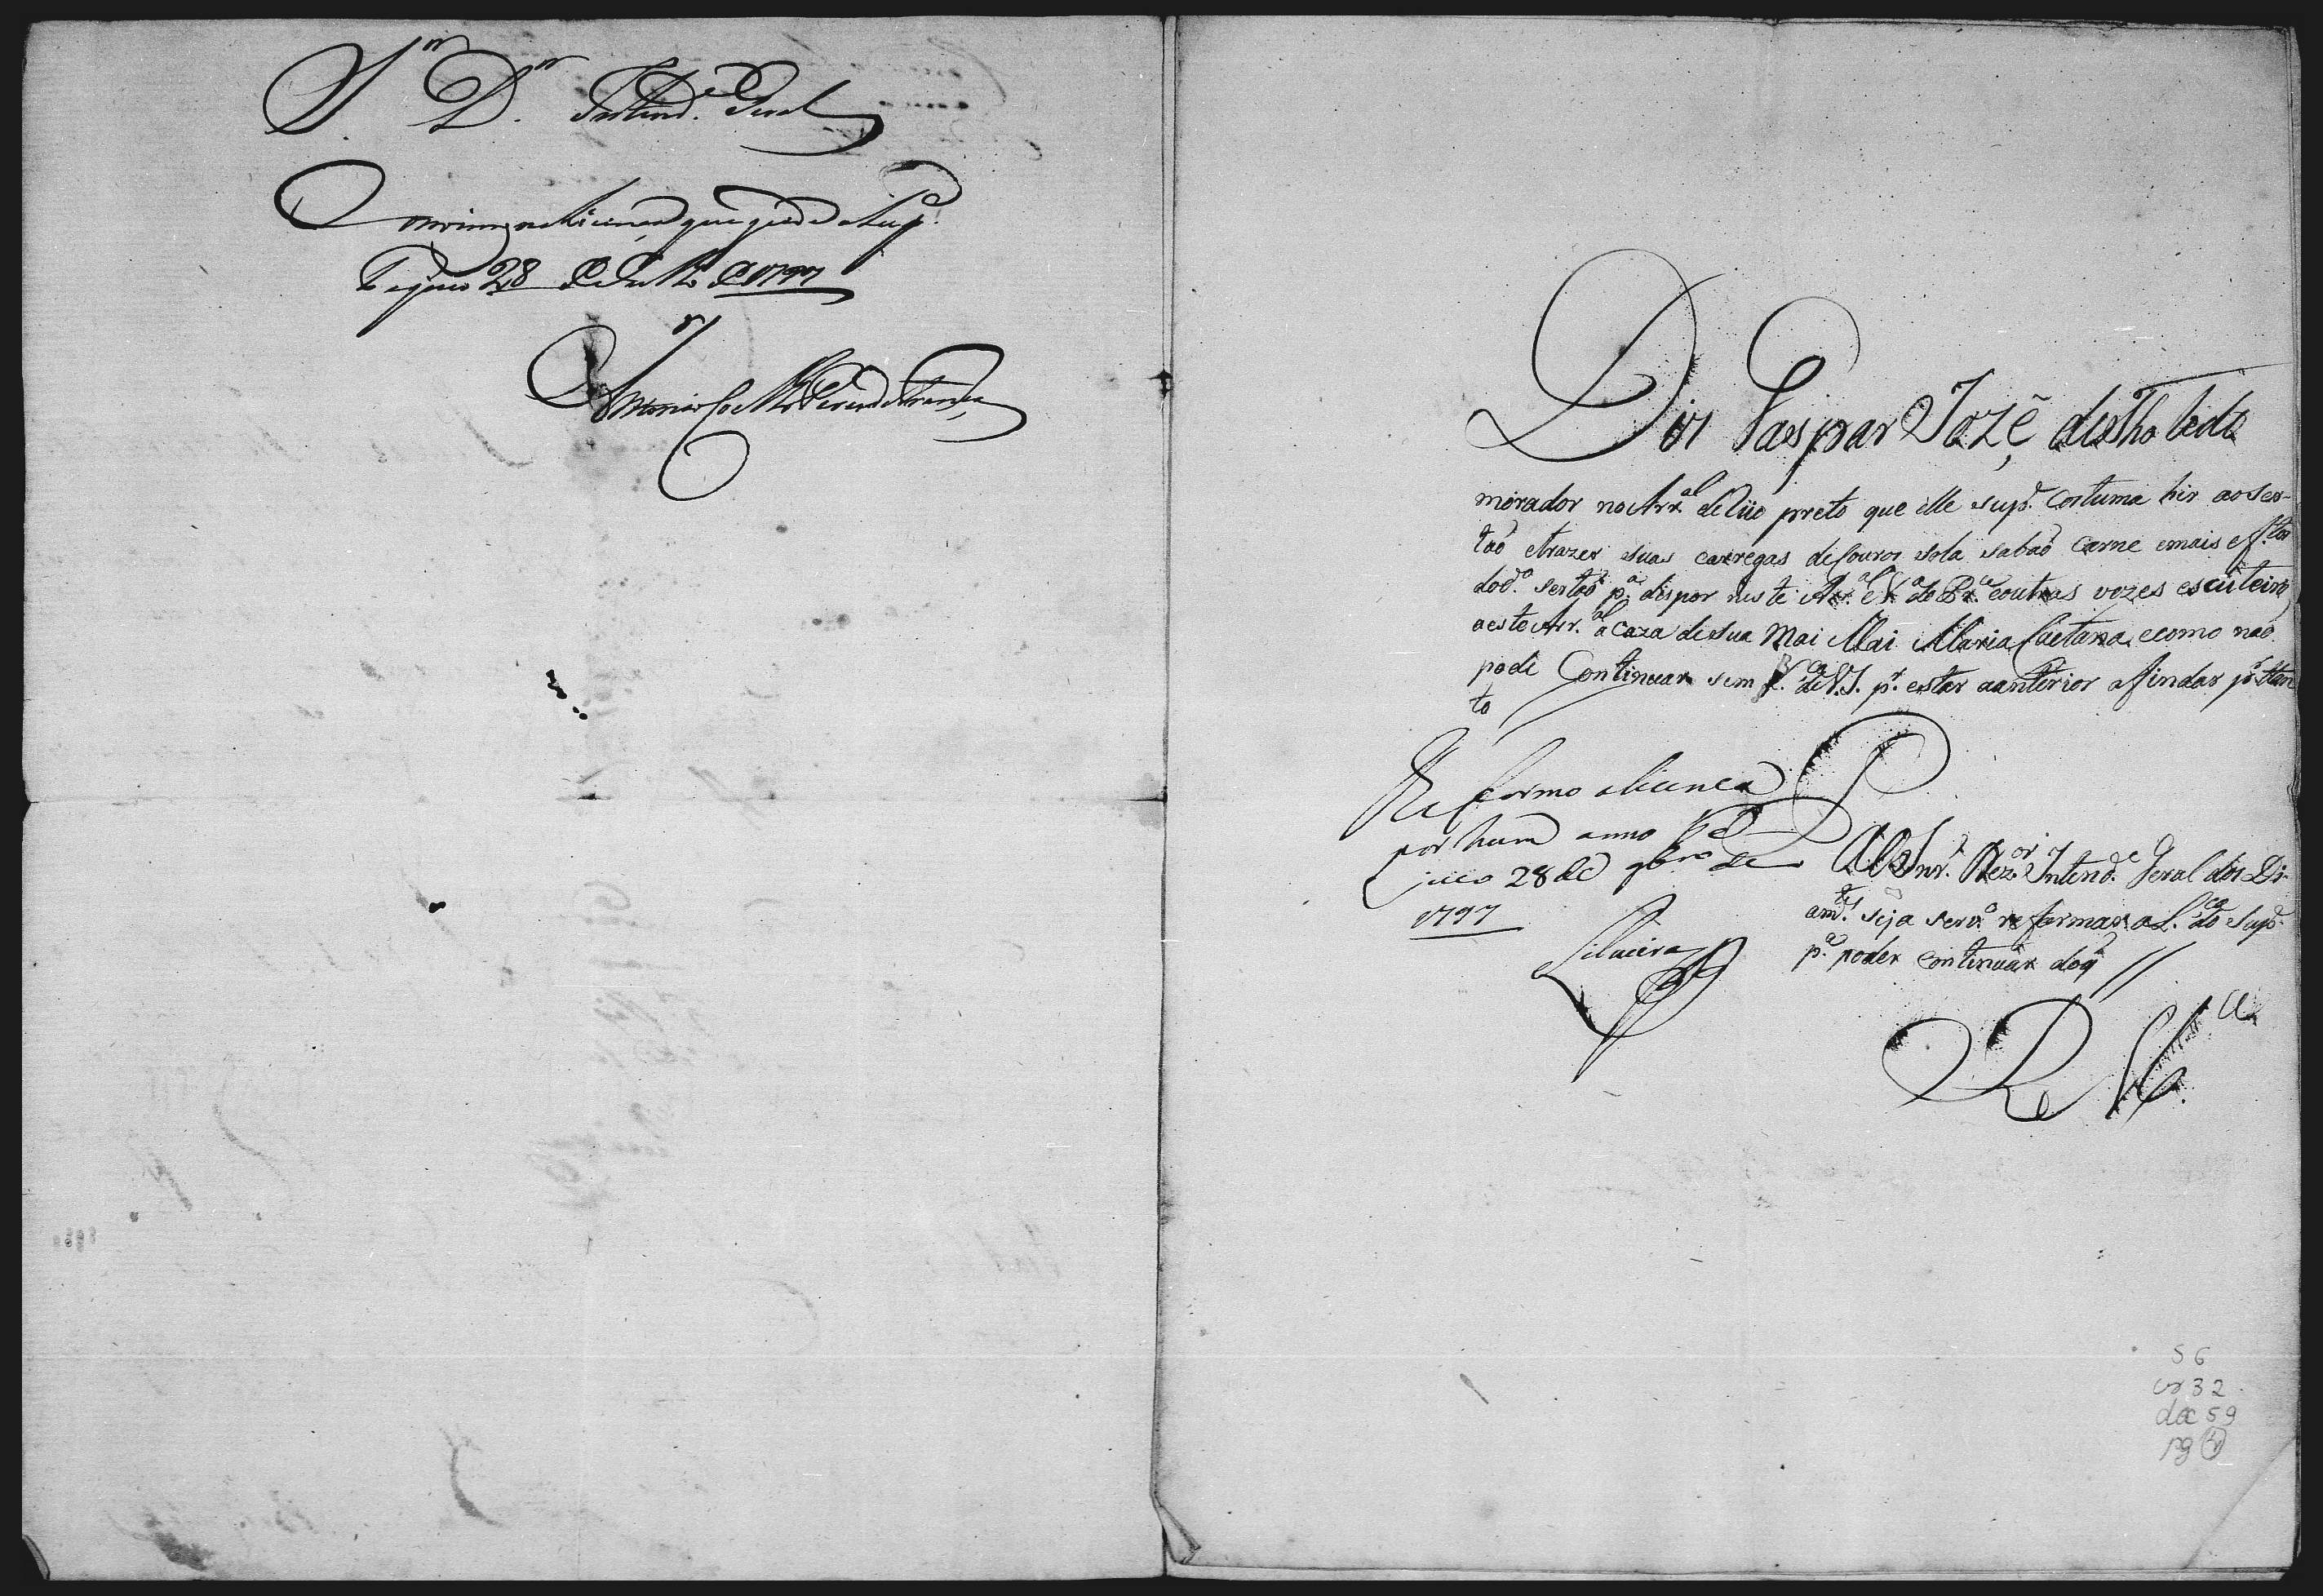 Snr. Dor. Intend.e Geral
Convim na licença que pede o Sup.e
Tejuco 28 de
de 1797
Diz Gaspar Jozé de Tholedo
morador no Arr.al de Rio preto que elle sup.e costuma hir ao Ser-
taõ e trazer suas carregas de Couros sola sabaõ carne e mais ef.tos
do d.o Sertaõ p.a dispor neste Arr.al e V.a do Pr.e e outras vezes escuteiro
a este Arr.al a caza de sua Mai Mai Maria Caetana, e como naõ
pode Continuar sem L.ca de V.S. p.r estar a anterior a findar p.r tan
to
P
A V.S. Snr. Dez.or Intend.e Geral dos Di-
am.tes seja serv.o reformar a L.ca do Sup.e
p.a poder continuar do q //
E R M.ce
Reformo a licença
por hum anno Te-
juco 28 de 9br.o de
1797
Silveira
56
cx 32
doc 59
pg